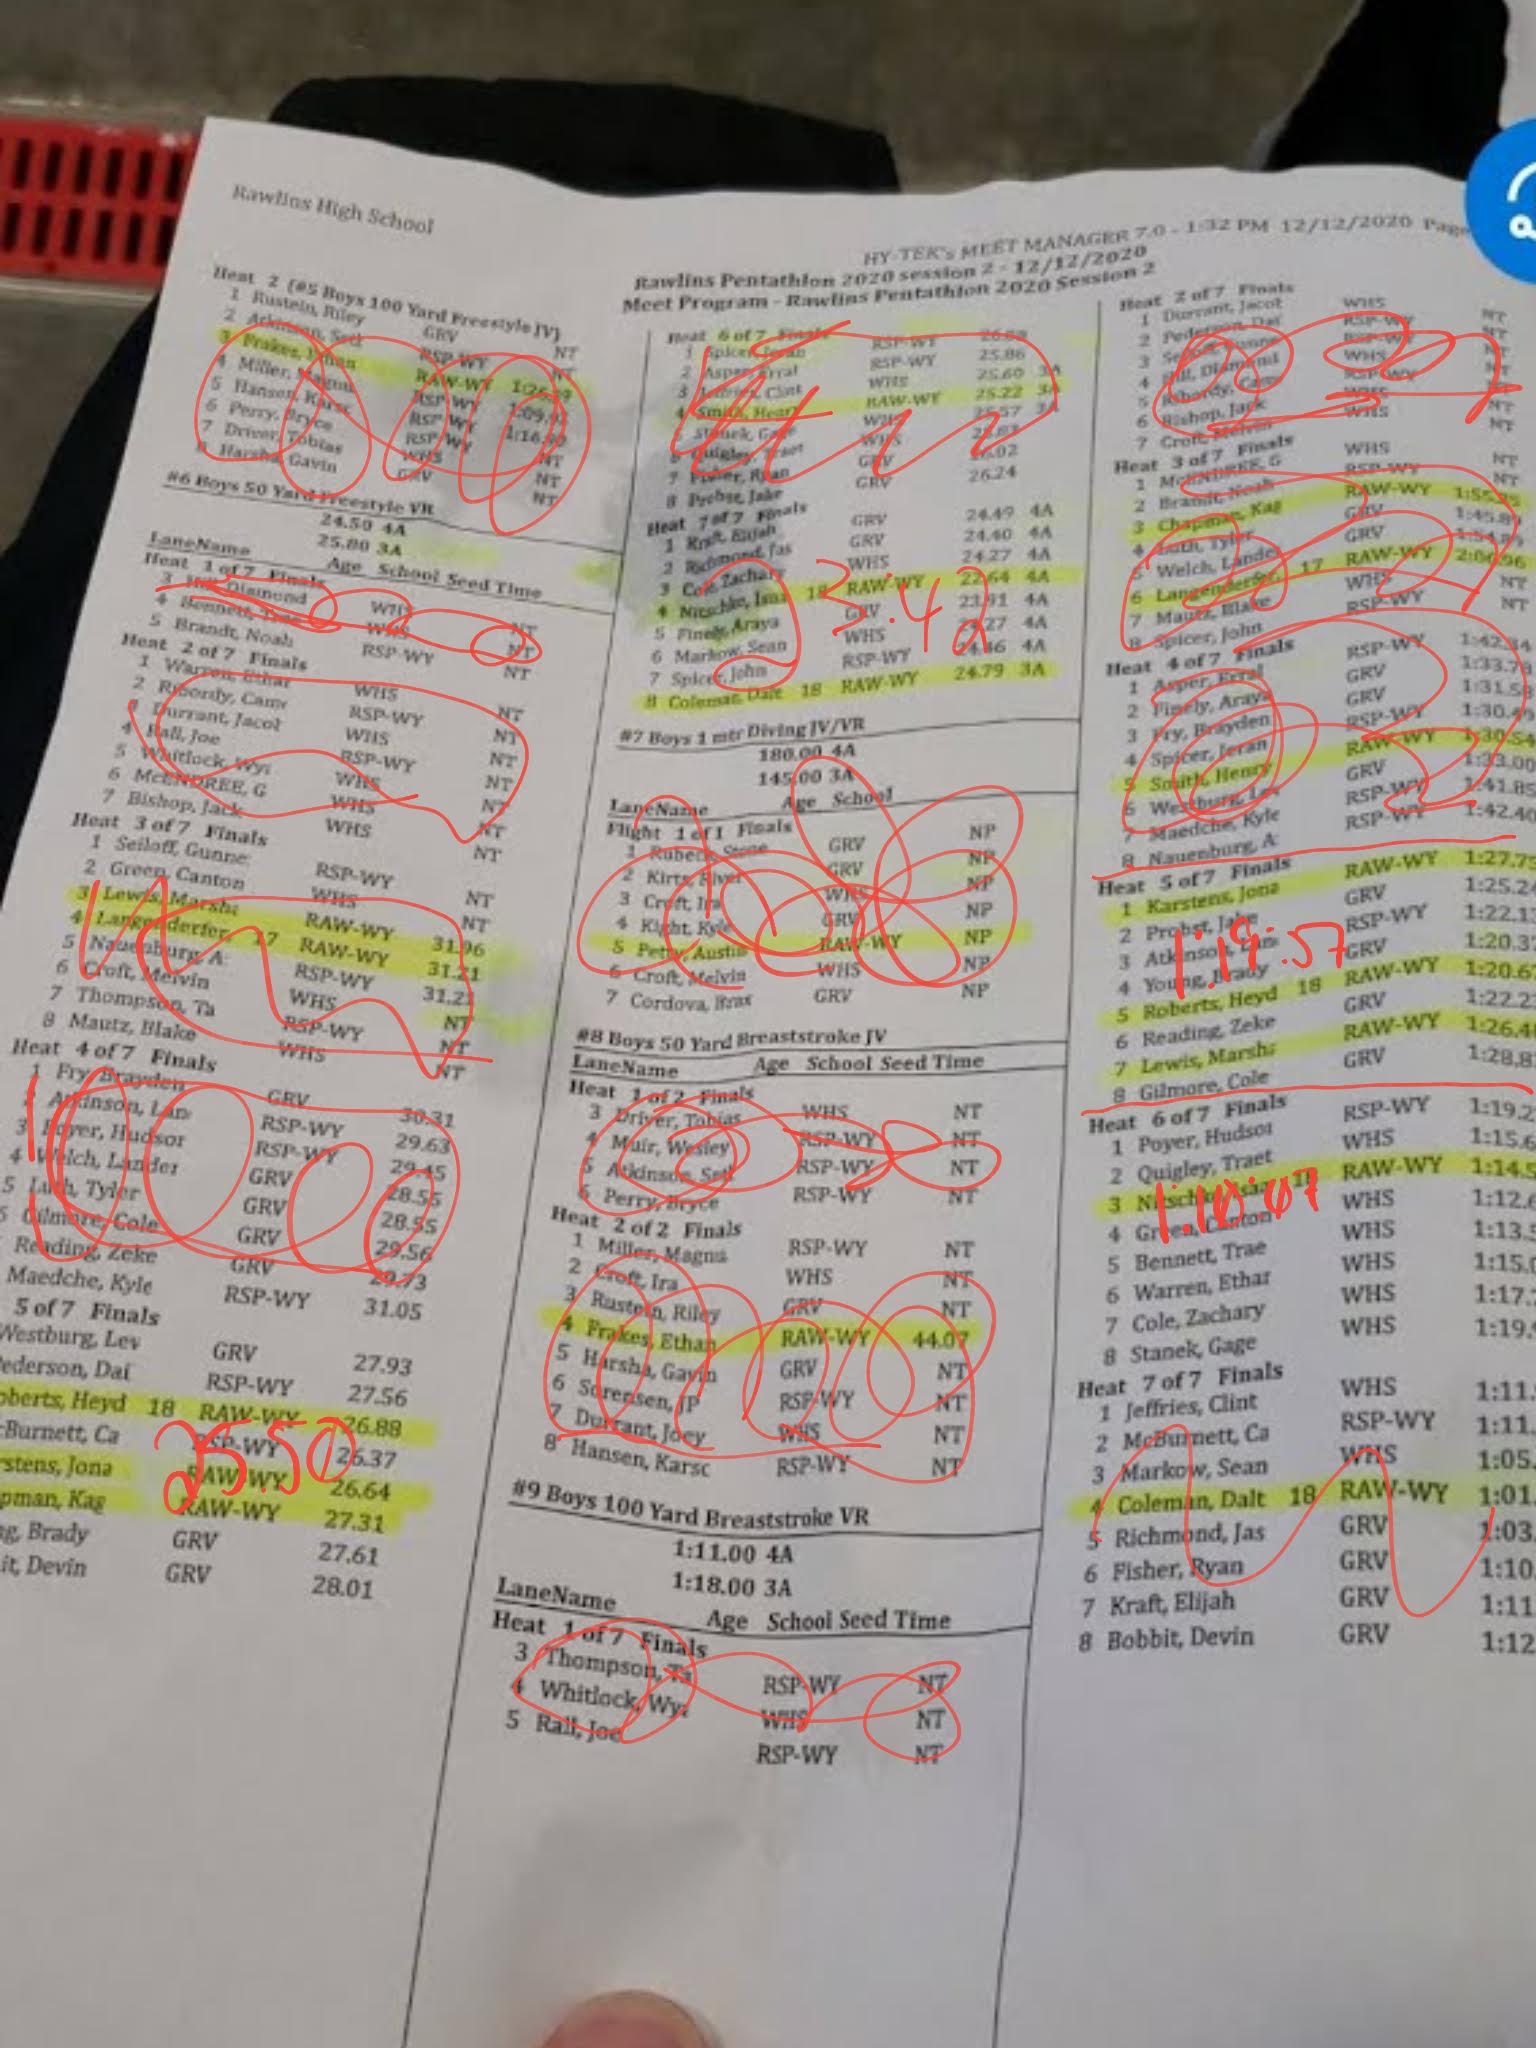 Rawlins High School
HY-TEK's MEET MANAGER 7.0 - 1:32 PM 12/12/2020 Page
Rawlins Pentathlon 2020 session 2 - 12/12/2020
Meet Program - Rawlins Pentathlon 2020 Session 2
Heat 2 (#5 Boys 100 Yard Freestyle JV)
1 Rustein, Riley GRV NT
2 Atkinson, Seth RSP-WY NT
3 Frakes, Ethan RAW-WY
4 Miller, Magnu RSP-WY
5 Hansen, Karsc RSP-WY
6 Perry, Bryce RSP-WY NT
7 Driver, Tobias WHS NT
8 Harsha, Gavin GRV NT
#6 Boys 50 Yard Freestyle VR
24.50 4A
25.80 3A
LaneName Age School Seed Time
Heat 1 of 7 Finals
3 Hill, Diamond WHS NT
4 Bennett, Trae WHS NT
5 Brandt, Noah RSP-WY NT
Heat 2 of 7 Finals
1 Warren, Ethar WHS NT
2 Ribordy, Came RSP-WY NT
3 Durrant, Jacot WHS NT
4 Rall, Joe RSP-WY NT
5 Whitlock, Wya WHS NT
6 McENDREE, G WHS NT
7 Bishop, Jack WHS NT
Heat 3 of 7 Finals
1 Seiloff, Gunne: RSP-WY NT
2 Green, Canton WHS NT
3 Lewis, Marsha RAW-WY 31.96
4 Langenderfer, 17 RAW-WY 31.21
5 Nauenburg, A: RSP-WY 31.21
6 Croft, Melvin WHS NT
7 Thompson, Ta RSP-WY NT
8 Mautz, Blake WHS NT
Heat 4 of 7 Finals
1 Fry, Brayden GRV 30.31
2 Atkinson, Lan RSP-WY 29.63
3 Poyer, Hudsor RSP-WY 29.45
4 Welch, Lander GRV 28.55
5 Luth, Tyler GRV 28.55
6 Gilmore, Cole GRV 29.56
Reading, Zeke GRV 29.73
Maedche, Kyle RSP-WY 31.05
5 of 7 Finals
Westburg, Lev GRV 27.93
ederson, Dai RSP-WY 27.56
oberts, Heyd 18 RAW-WY 26.88
cBurnett, Ca RSP-WY 26.37
rstens, Jona RAW-WY 26.64
pman, Kag RAW-WY 27.31
ng, Brady GRV 27.61
it, Devin GRV 28.01
25.50
Heat 6 of 7 Finals
1 Spicer, Jeran RSP-WY
2 Asper, Erral RSP-WY 25.86
3 Jeffries, Clint WHS 25.60 3A
4 Smith, Henry RAW-WY 25.22 3A
Stanek, Gage WHS
Quigley, Traet WHS
7 Fisher, Ryan GRV
8 Probst, Jake GRV 26.24
Heat 7 of 7 Finals
1 Kraft, Elijah GRV 24.49 4A
2 Richmond, Jas GRV 24.40 4A
3 Cole, Zachary WHS 24.27 4A
4 Nitschke, Isaa 18 RAW-WY 22.64 4A
5 Finely, Araya GRV 23.91 4A
6 Markow, Sean WHS 4A
7 Spicer, John RSP-WY 4A
8 Coleman, Dalt 18 RAW-WY 24.79 3A
23.42
#7 Boys 1 mtr Diving JV/VR
180.00 4A
145.00 3A
LaneName Age School
Flight 1 of 1 Finals
1 Rubeck, Stone GRV NP
2 Kirts, River GRV NP
3 Croft, Ira WHS NP
4 Kight, Kyle GRV NP
5 Petty, Austin RAW-WY NP
6 Croft, Melvin WHS NP
7 Cordova, Brax GRV NP
#8 Boys 50 Yard Breaststroke JV
LaneName Age School Seed Time
Heat 1 of 2 Finals
3 Driver, Tobias WHS NT
4 Muir, Wesley RSP-WY NT
5 Atkinson, Setl RSP-WY NT
6 Perry, Bryce RSP-WY NT
Heat 2 of 2 Finals
1 Miller, Magnu RSP-WY NT
2 Croft, Ira WHS NT
3 Rustein, Riley GRV NT
4 Frakes, Ethan RAW-WY 44.07
5 Harsha, Gavin GRV NT
6 Sorensen, JP RSP-WY NT
7 Durrant, Joey WHS NT
8 Hansen, Karsc RSP-WY NT
#9 Boys 100 Yard Breaststroke VR
1:11.00 4A
1:18.00 3A
LaneName Age School Seed Time
Heat 1 of 7 Finals
3 Thompson, Ta RSP-WY NT
4 Whitlock, Wya WHS NT
5 Rall, Joe RSP-WY NT
Heat 2 of 7 Finals
1 Durrant, Jacot WHS NT
2 Pederson, Dai RSP-WY NT
3 RSP-WY NT
4 Hill, Diamond WHS NT
5 Ribordy, Came RSP-WY NT
6 Bishop, Jack WHS NT
7 Croft, Melvin WHS NT
Heat 3 of 7 Finals
1 McENDREE, G WHS NT
2 Brandt, Noah RSP-WY NT
3 Chapman, Kag RAW-WY
4 Luth, Tyler GRV 1:45.89
5 Welch, Lander GRV
6 Langenderfer, 17 RAW-WY 2:06.96
7 Mautz, Blake WHS NT
8 Spicer, John RSP-WY NT
Heat 4 of 7 Finals
1 Asper, Erral RSP-WY
2 Finely, Araya GRV
3 Fry, Brayden GRV
4 Spicer, Jeran RSP-WY
5 Smith, Henry RAW-WY
6 Westburg, Lev GRV 1:33.00
7 Maedche, Kyle RSP-WY 1:41.85
8 Nauenburg, A: RSP-WY 1:42.40
Heat 5 of 7 Finals
1 Karstens, Jona RAW-WY 1:27.7
2 Probst, Jake GRV 1:25.2
3 Atkinson, Lan RSP-WY 1:22.1
4 Young, Brady GRV 1:20.3
5 Roberts, Heyd 18 RAW-WY 1:20.6
6 Reading, Zeke GRV 1:22.2
7 Lewis, Marsha RAW-WY 1:26.4
8 Gilmore, Cole GRV 1:28.8
1:19.57
Heat 6 of 7 Finals
1 Poyer, Hudsor RSP-WY 1:19.2
2 Quigley, Traet WHS 1:15.6
3 Nitschke, Isaa 18 RAW-WY 1:14.5
4 Green, Canton WHS 1:12.6
5 Bennett, Trae WHS 1:13.5
6 Warren, Ethar WHS 1:15.0
7 Cole, Zachary WHS 1:17.
8 Stanek, Gage WHS 1:19.
Heat 7 of 7 Finals
1 Jeffries, Clint WHS 1:11.
2 McBurnett, Ca RSP-WY 1:11.
3 Markow, Sean WHS 1:05.
4 Coleman, Dalt 18 RAW-WY 1:01.
5 Richmond, Jas GRV 1:03.
6 Fisher, Ryan GRV 1:10.
7 Kraft, Elijah GRV 1:11
8 Bobbit, Devin GRV 1:12